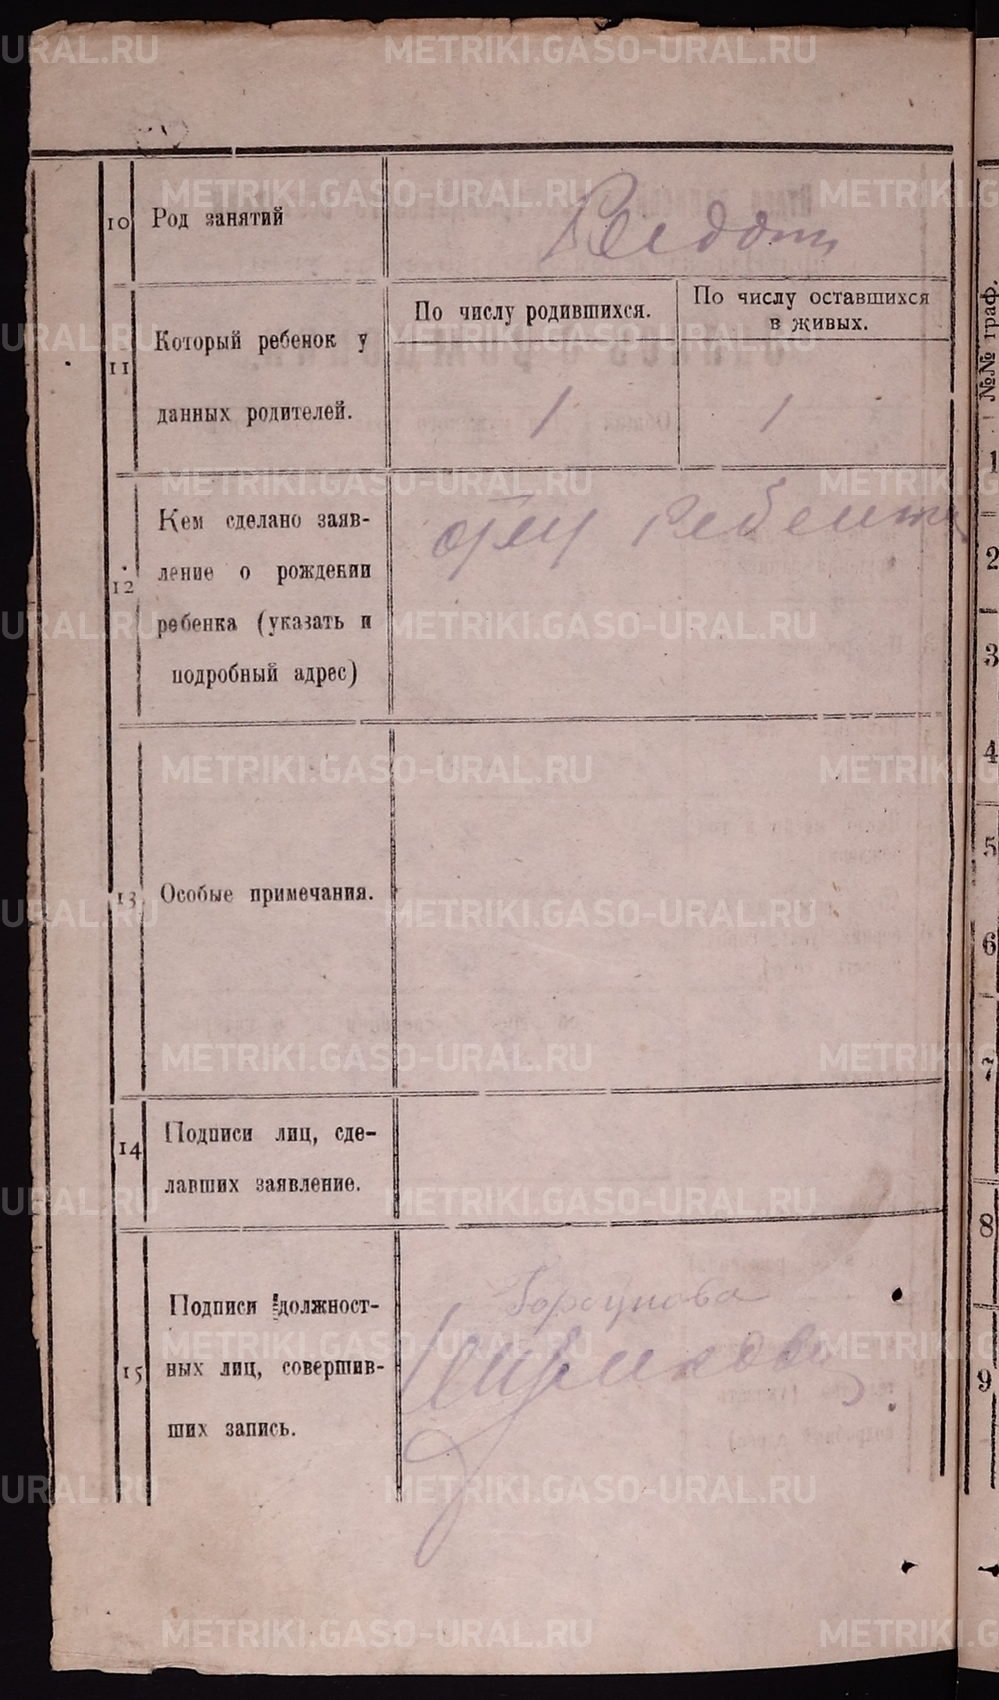 METRIKI.GASO-URAL.RU
10 Род занятий
11 Который ребенок у
данных родителей.
По числу родившихся.
По числу оставшихся
в живых.
1 1
12 Кем сделано заяв-
ление о рождении
ребенка (указать и
подробный адрес)
ребенка
13 Особые примечания.
14 Подписи лиц, сде-
лавших заявление.
15 Подписи должност-
ных лиц, совершив-
ших запись.
№№ граф.
1
2
3
4
5
6
7
8
9